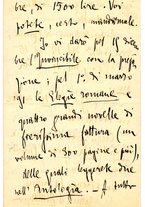 bre, di 1500 lire. Voi
potete, certo mandarmele.
Io vi darò pel 15 dicem
bre l'Invincibile con la prefa
zione; pel 1º di marzo
le Elegie romane e
quattro grandi novelle di
fattura (un
volume di 300 pagine e più),
delle quali leggerete due
nell'Antologia. – A tutto